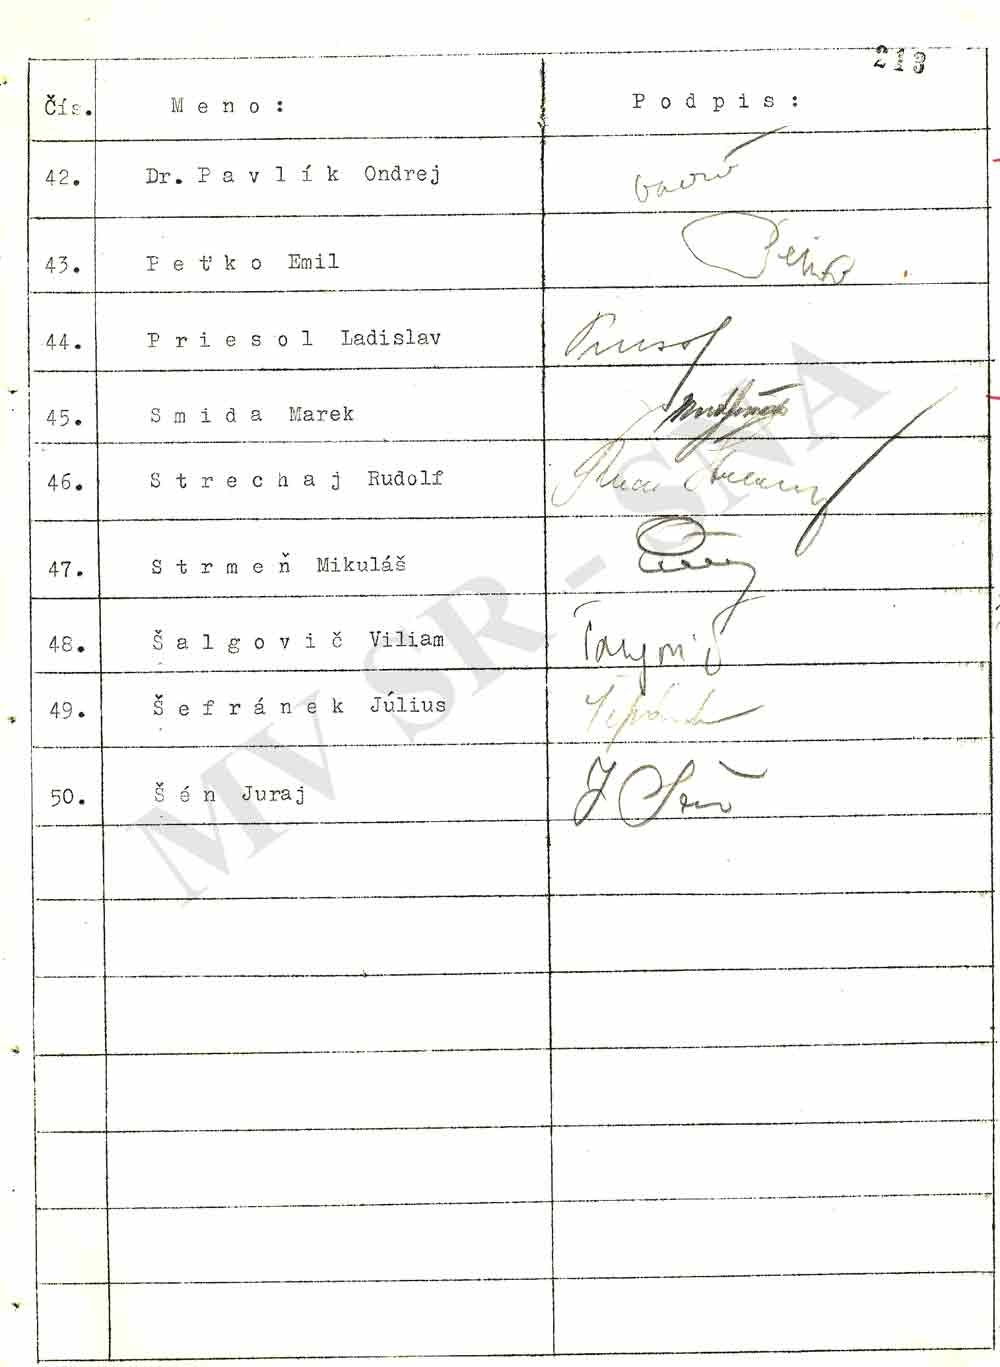 213
Čís. Meno: Podpis:
42. Dr. Pavlík Ondrej
43. Peťko Emil
44. Priesol Ladislav
45. Smida Marek
46. Strechaj Rudolf
47. Strmeň Mikuláš
48. Šalgovič Viliam
49. Šefránek Július
50. Šén Juraj J Šén
MV SR - SNA